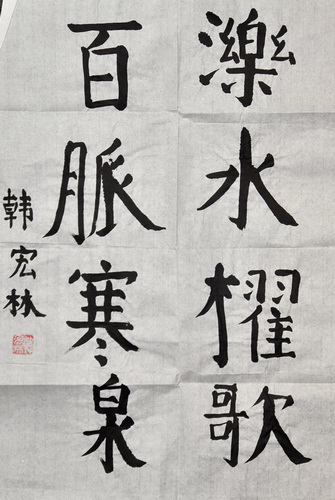 濼水櫂歌
百脈寒泉
韩宏林